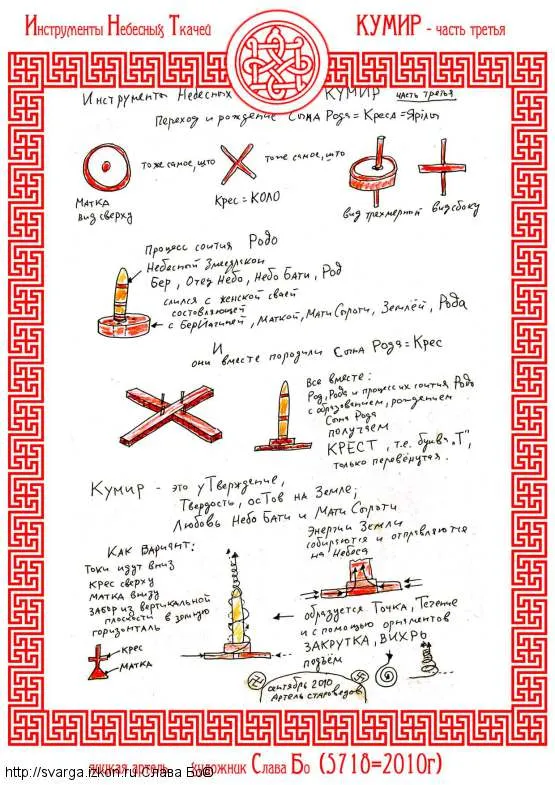 Инструменты Небесных Ткачей
КУМИР - часть третья
Инструменты Небесных КУМИР часть третья
Переход и рождение Сына Родa = Креса = Ярилы
тоже самое, что
тоже самое, что
Матка
вид сверху
Крес = КОЛО
вид трехмерный
вид сбоку
Процесс соития Родо
Небесный
Бер, Отец Небо, Небо Бати, Род
слился с женской своей
составляющей
с БерИгиней, Маткой, Мати Сыроти, Землёй, Рода
И
они вместе породили Сына Рода = Крес
Все вместе:
Род, Рода и процесс их соития Родо
с образованием, рождением
Сына Рода
получаем
КРЕСТ, т.е. буква "Т",
только перевёнутая.
Кумир - это уТверждение,
Твердость, осТов на Земле;
Любовь Небо Бати и Мати Сыроти
Энергии Земли
собираются и отправляются
на Небеса
Как вариант:
Токи идут вниз
крес сверху
матка внизу
забор из вертикальной
плоскости в земную
горизонталь
крес
матка
образуется Точка, Течение
и с помощью орнаментов
ЗАКРУТКА, ВИХРЬ
подъём
сентябрь 2010
Артель староведов
художник Слава Бо (5718=2010г)
http://svarga.izkon.ru/Слава Бо©